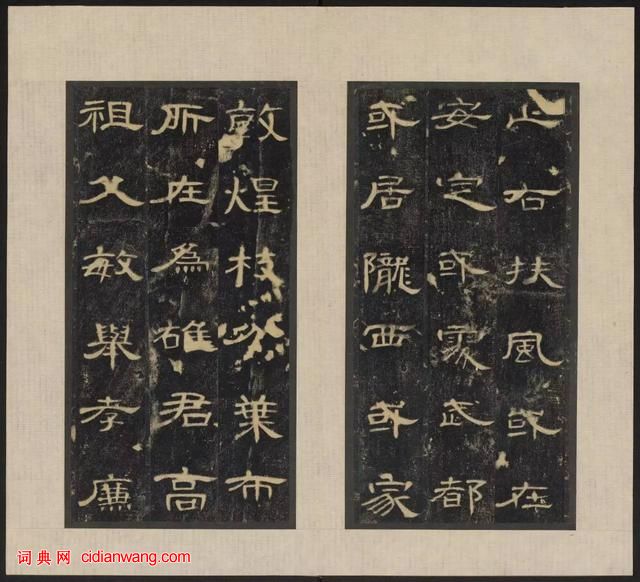 止右扶風或在
安定或處武都
或居隴西或家
敦煌枝分葉布
所在為雄君高
祖父敏舉孝廉
词典网 cidianwang.com